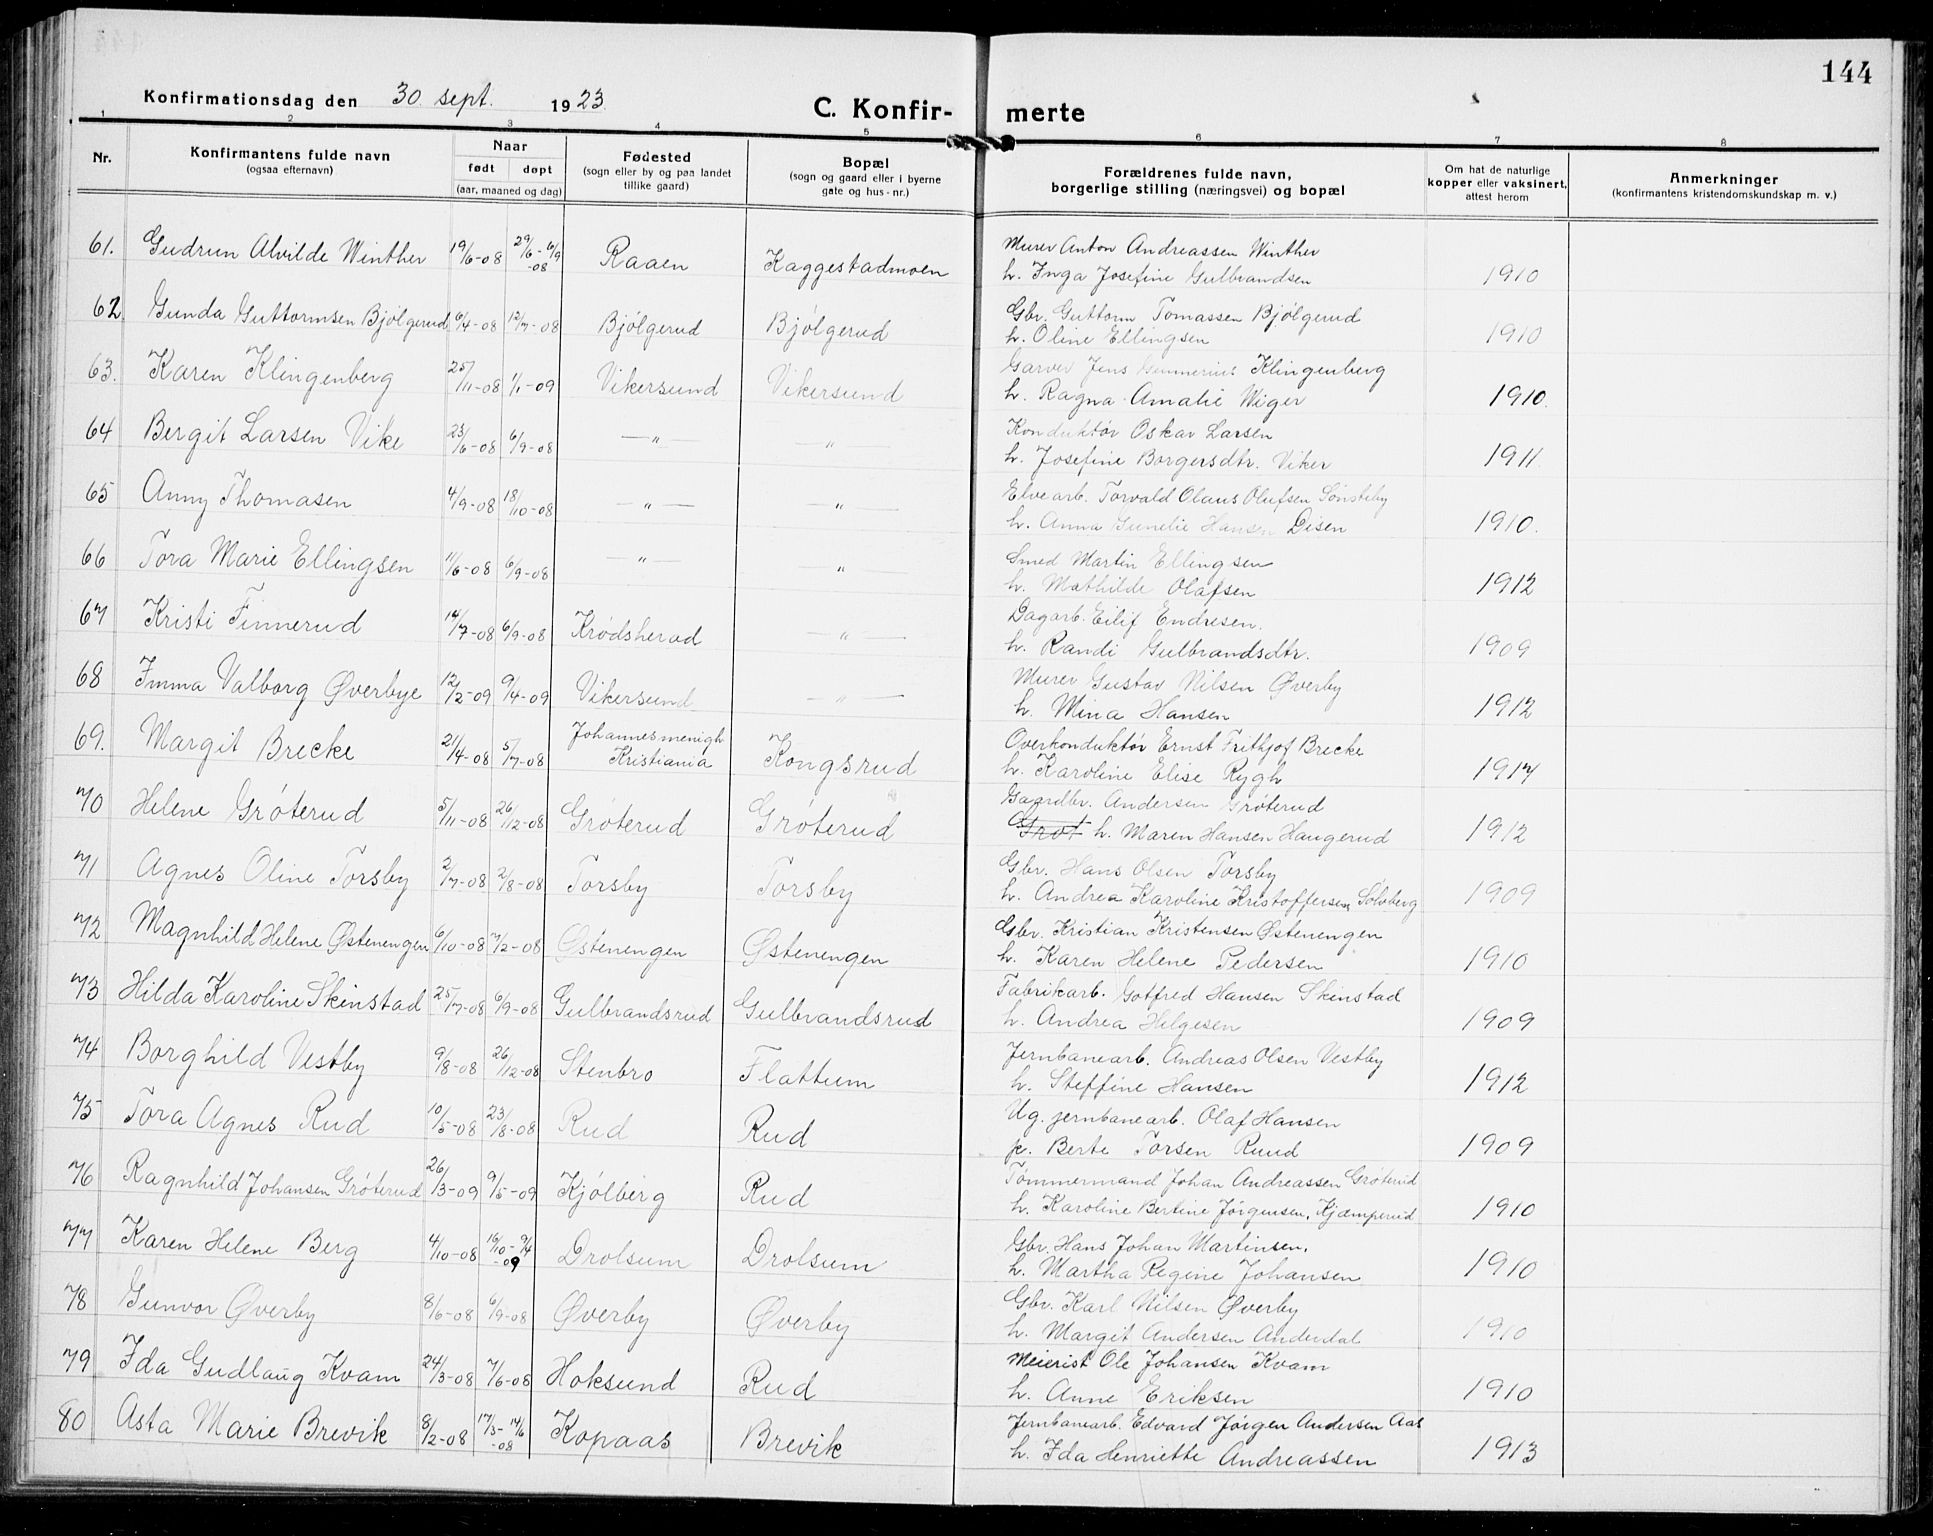 144
Konfirmationsdag den 30. sept. 1923
C. Konfir- merte
1 2 3 4 5 6 7 8
Nr. Konfirmantens fulde navn (ogsaa efternavn) Naar født døpt (aar, maaned og dag) Fødested (sogn eller by og paa landet tillike gaard) Bopæl (sogn og gaard eller i byerne gate og hus-nr.) Forældrenes fulde navn, borgerlige stilling (næringsvei) og bopæl Om hat de naturlige kopper eller vaksinert, attest herom Anmerkninger (konfirmantens kristendomskundskap m. v.)
61. Gudrun Alvilde Winther 19/6-08 29/6-6/9-08 Raaen Kaggestadmoen Murer Anton Andreassen Winther
h. Inga Josefine Gulbrandsen 1910
62 Gunda Guttormsen Bjölgerud 6/4-08 12/7-08 Bjölgerud Bjölgerud Gbr. Guttorm Tomassen Bjølgerud
h. Oline Ellingsen 1910
63. Karen Klingenberg 25/11-08 1/1-09 Vikersund Vikersund Garver Jens Gunnerius Klingenberg
h. Ragna Amalie Wiger 1910.
64 Bergit Larsen Vike 23/6-08 6/9-08 —"— " Konduktør Oskar Larsen
h. Josefine Borgersdtr. Viker 1911.
65 Anny Thomasen 4/9-08 18/10-08 —"— —"— Elvearb. Torvald Olaus Olufsen Sønsteby
h. Anna Gunelie Hansen Disen 1910.
66 Tora Marie Ellingsen 11/6-08 6/9-08 —"— " Smed Martin Ellingsen
h. Mathilde Olafsen 1912
67 Kristi Finnerud 14/7-08 6/9-08 Krødsherad —"— Dagarb. Eilif Endresen.
h. Randi Gulbrandsdtr. 1909
68 Imma Valborg Øverbye 12/2-09 9/4-09 Vikersund —"— Murer Gustav Nilsen Øverby
h. Mina Hansen 1912
69. Margit Brecke 21/4-08 5/7-08 Johannesmenigh Kristiania Kongsrud Overkonduktør Ernst Frithjof Brecke
h. Karoline Elise Rygh 1917
70 Helene Gróterud 5/11-08 26/12-08 Gróterud Gróterud Gaardbr. Andersen Grøterud
Grøt h. Maren Hansen Haugerud 1912
71 Agnes Oline Torsby 2/7-08 2/8-08 Torsby Torsby Gbr. Hans Olsen Torsby
h. Andrea Karoline Kristoffersen Sølvberg 1909
72 Magnhild Helene Østenengen 6/10-08 7/2-08 Østenengen Østenengen Gbr. Kristian Kristensen Østenengen
h. Karen Helene Pedersen 1910
73 Hilda Karoline Skinstad 25/7-08 6/9-08 Gulbrandsrud Gulbrandsrud Fabrikarb. Gotfred Hansen Skinstad
h. Andrea Helgesen 1909
74 Borghild Vestby 9/8-08 26/12-08 Stenbro Flattum Jernbanearb. Andreas Olsen Vestby
h. Steffine Hansen 1912
75 Tora Agnes Rud 10/5-08 23/8-08 Rud Rud Ug. jernbanearb. Olaf Hansen
p. Berte Torsen Ruud 1909
76 Ragnhild Johansen Gróterud 26/3-09 9/5-09 Kjólberg Rud Tømmermand Johan Andreassen Grøterud
h. Karoline Bertine Jørgensen, Kjæmperud 1910
77 Karen Helene Berg 4/10-08 16/10-9/4-09 Drolsum Drolsum Gbr. Hans Johan Martinsen.
h. Martha Regine Johansen 1910
78 Gunvor Øverby 8/6-08 6/9-08 Øverby Øverby Gbr. Karl Nilsen Øverby
h. Margit Andersen Anderdal 1910
79 Ida Gudlaug Kvam 24/3-08 7/6-08 Hoksund Rud Meierist Ole Johansen Kvam
h. Anne Eriksen 1910
80 Asta Marie Brevik 8/2-08 17/3-14/6-08 Kopaas Brevik Jernbanearb. Edvard Jørgen Andersen Aas
h. Ida Henriette Andreassen 1913